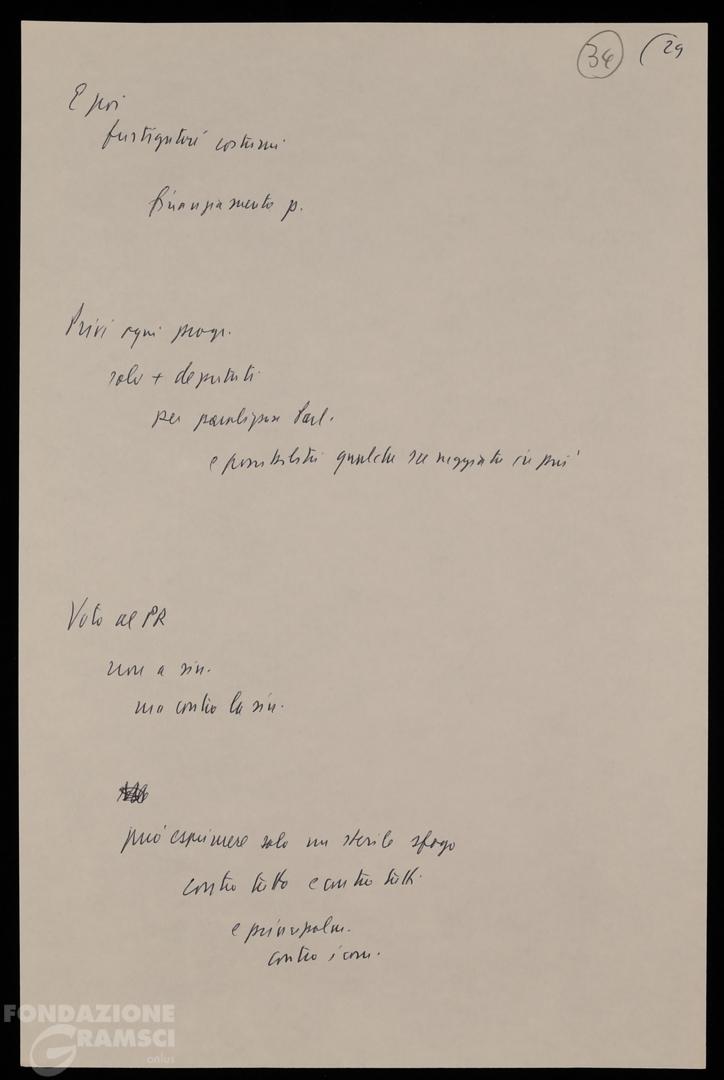 34 (29
E poi
fustigatori costumi
finanziamento p.
Privi ogni progr.
solo + deputati
per paralizzare Parl.
e possibilità qualche sceneggiata in più
Voto al PR
non a sin.
ma contro la sin.
può esprimere solo uno sterile sfogo
contro tutto e contro tutti
e principalm.
contro i com.
FONDAZIONE
GRAMSCI
onlus